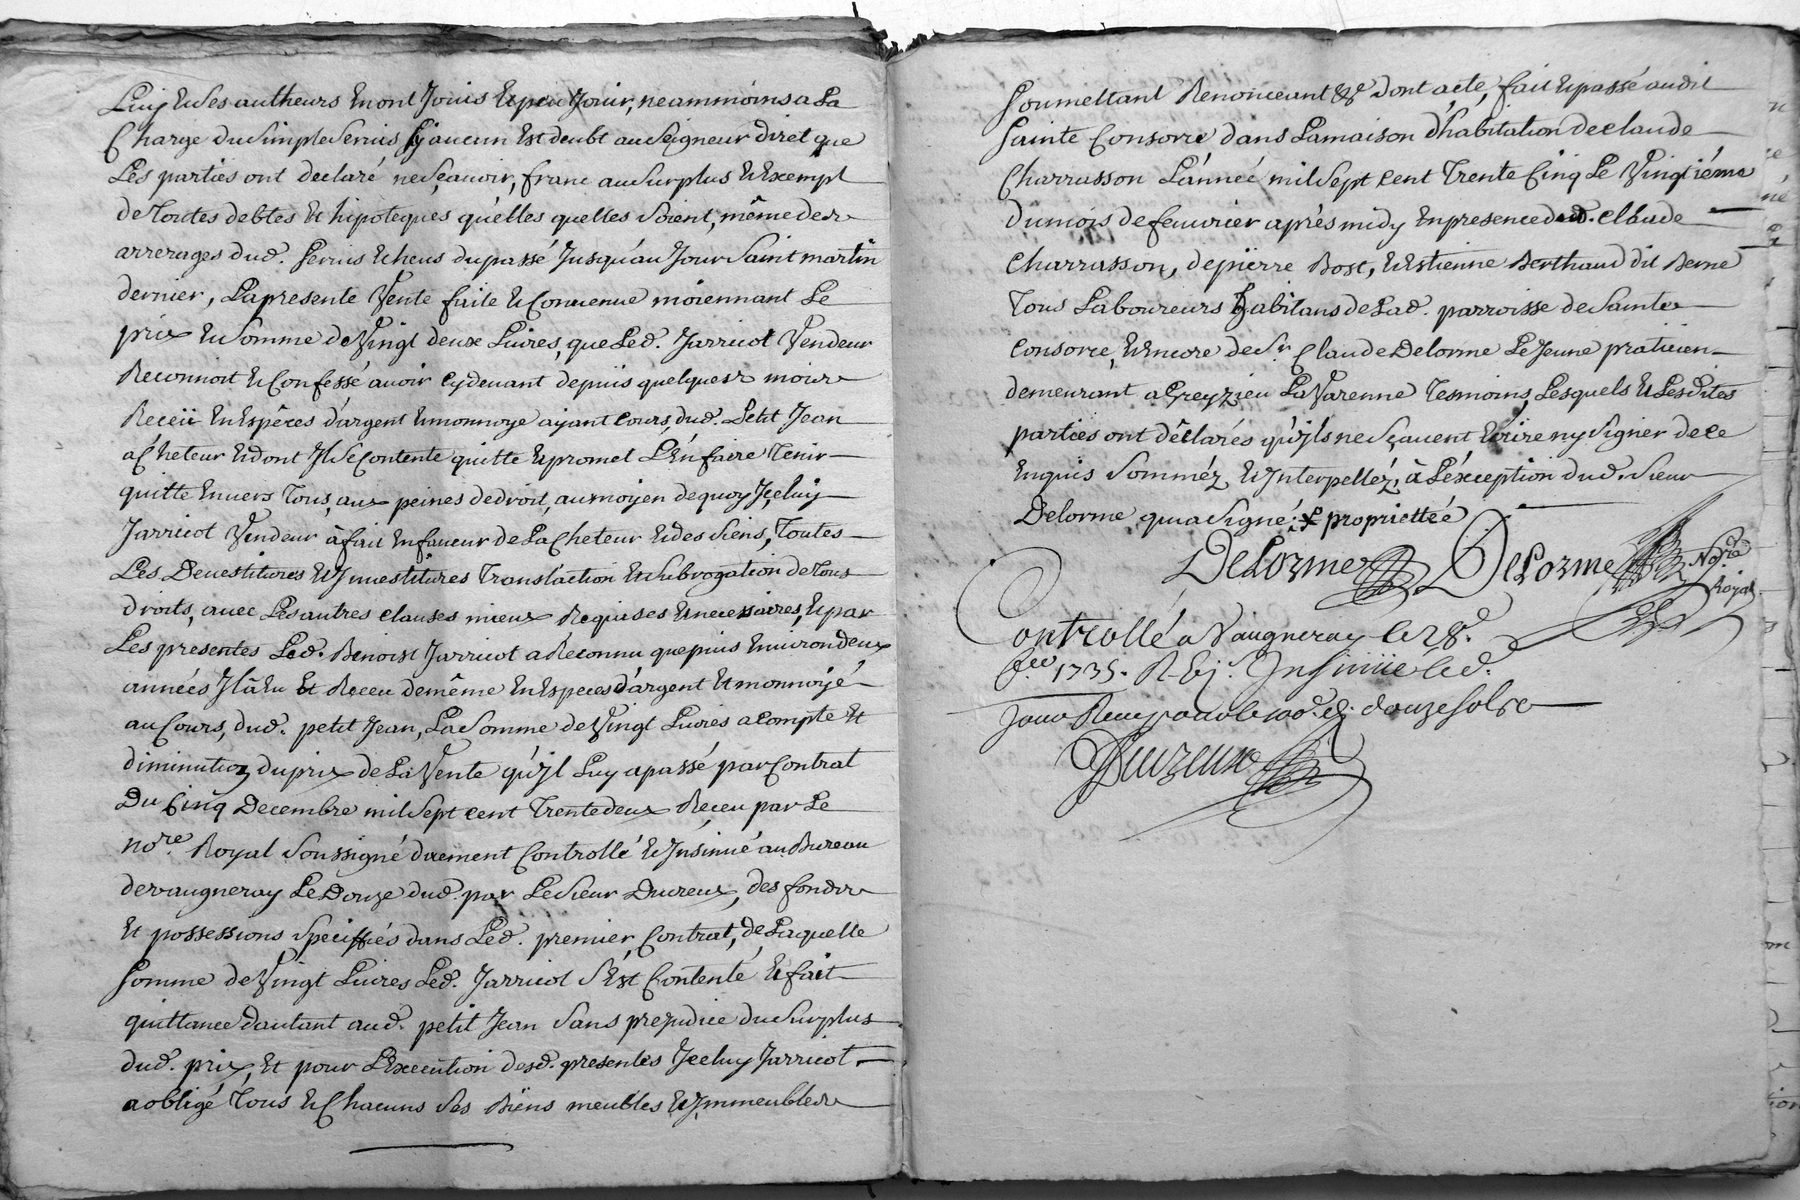 Luy et ses autheurs en ont Jouis et peu Jouir, neammoins a La
Charge du simple servis sy aucun Est deubt au seigneur diret que
Les parties ont declaré ne sçauoir, franc au surplus et Exempt
de Toutes debtes et hipoteques qu'elles quelles soient, même des
arrerages dud. servis Echeus du passé Jusqu'au Jour saint martin
dernier, La presente Vente faite et Conuenue moiennant Le
prix et somme de Vingt deux Liures, que Led. Jarricot Vendeur
Reconnoit et Confessé auoir cy deuant depuis quelques mois
Receü en Espêces d'argent et monnoye ayant Cours, dud. Petit Jean
acheteur et dont Jl se Contente quitte et promet L'en faire Tenir
quitte enuers Tous, aux peines de droit, au moyen de quoy Jceluy
Jarricot Vendeur à fait en faueur de Lacheteur et des siens, Toutes
Les Deuestitures et Jnuestitures Translaction et subrogation de Tous
droits, auec Les autres clauses mieux Requises et necessaires, et par
Les presentes Led. Benoist Jarricot a Reconnu que puis enuiron deux
années Jl â Eu et Receu de même en Especes d'argent et monnoyé
au Cours, dud. petit Jean, La somme de Vingt Liures a compte et
diminution du prix de La Vente qu'jl Luy a passé par Contrat
Du Cinq Decembre mil sept cent Trente deux Reçeu par Le
no.re Royal soussigné duement Controllé et Jnsinué au Bureau
de vaugneray Le Douze dud. par Le sieur Ducreux, des fonds
et possessions speciffiés dans Led. premier Contrat, de Laquelle
somme de Vingt Liures Led. Jarricot s'Est Contenté et fait
quittance d'autant aud. petit Jean sans prejudice du surplus
dud. prix, Et pour L'Execution desd. presentes Jceluy Jarricot
a obligé Tous et Chacuns ses Biens meubles et Jmmeubles
soumettant Renonceant &c dont acte, fait et passé audit
sainte Consorce dans La maison d'habitation de claude
Charrasson L'année mil sept cent Trente Cinq Le Vingtiéme
du mois de feuurier aprés midy en presence dud. Claude
Charrasson, de pierre Bost, et Estienne Berthaud dit Berne
Tous Laboureurs habitans de Lad. parroisse de Sainte
Consorce, et encore de sr Claude Delorme Le Jeune praticien
demeurant a Greyzieu La Varenne Tesmoins, Lesquels et Lesdites
parties ont déclarés qu'jls ne sçauent Ecrire ny signer de ce
Enquis sommés et Interpellés, à L'éxception dud. sieur
Delorme qui a signé: propriettée
Delorme Delorme No.re
Royal
Controllé a Vaugneray le 28e
1735. Insinué led.
Jour Receu douze sols
Ducreux